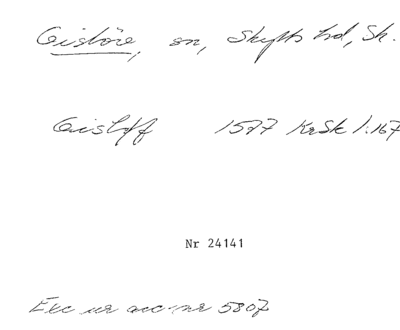 Gislöve, sn, Skytts hd, Sk.
Gislöff 1577 KrSk 1:167
Nr 24141
Exc ur acc-nr 5807